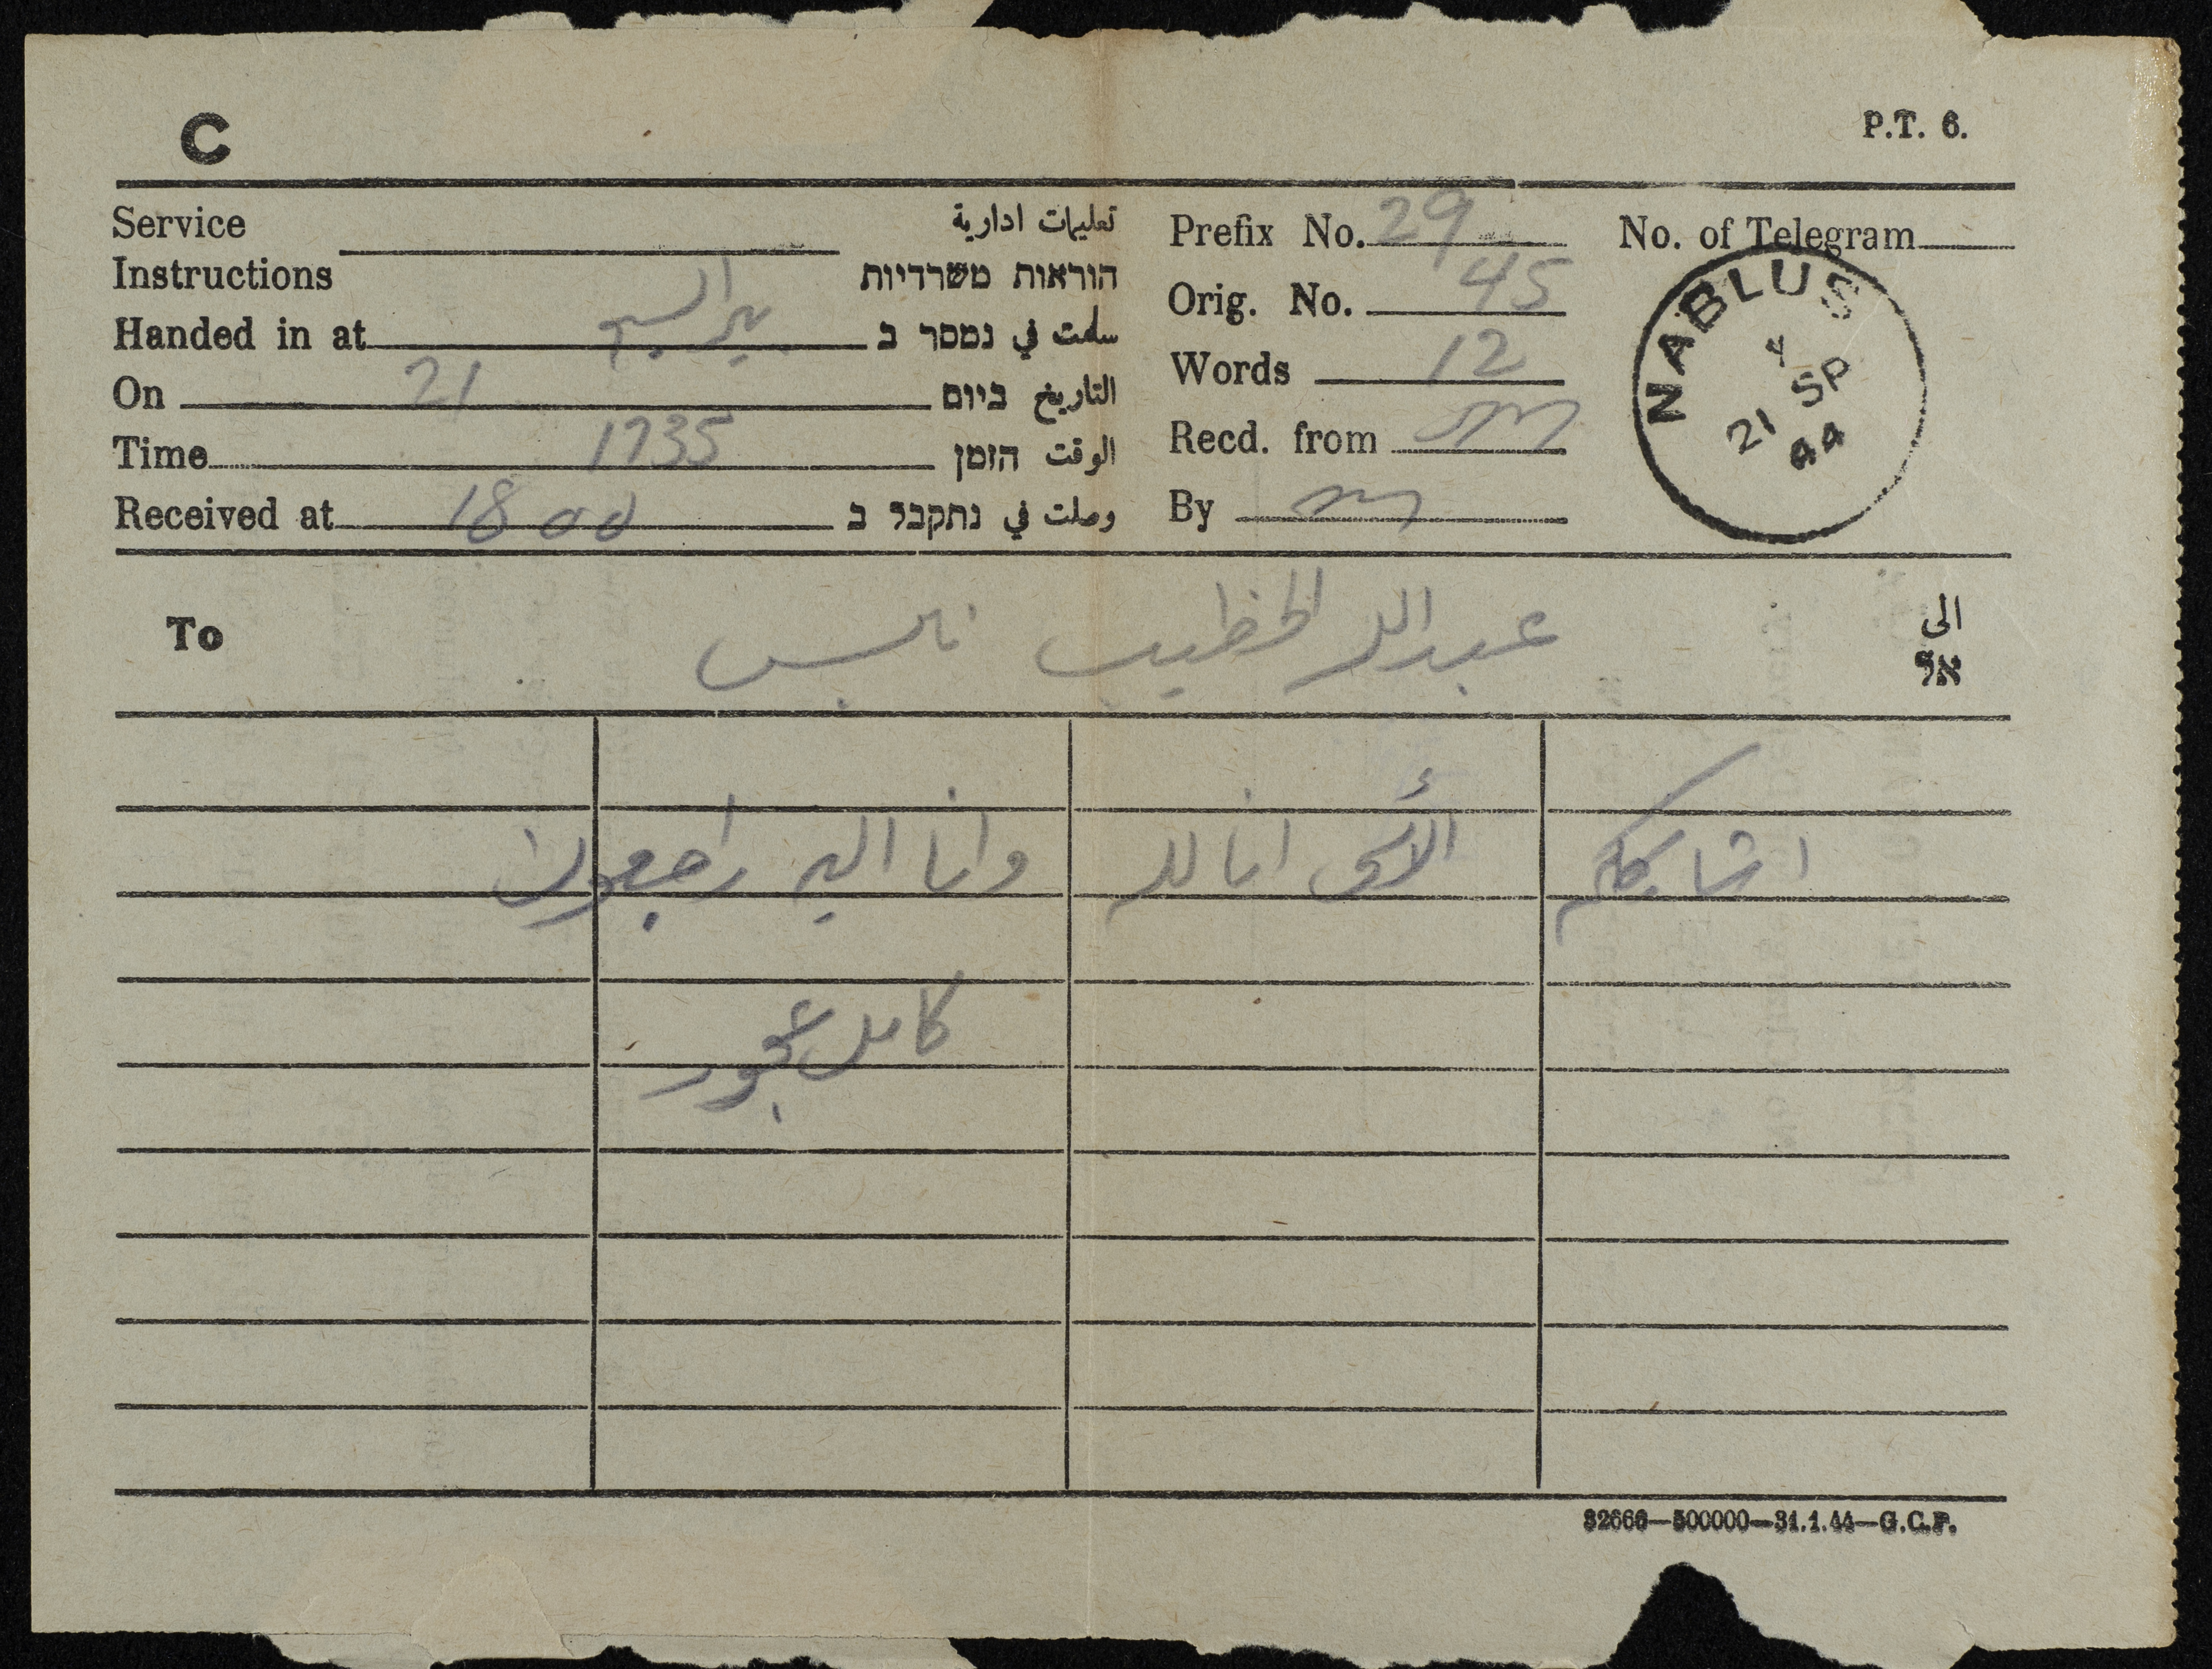 C
P.T. 6.
Service Instructions تعليمات ادارية הוראות משרדיות
Handed in at بير السبع سلمت في נמסר ב
On 21 التاريخ ביום
Time 1735 الوقت הזמן
Received at 1800 وصلت في נתקבל ב
Prefix No. 29
Orig. No. 45
Words 12
Recd. from
By
No. of Telegram
NABLUS
21 SP
44
To عبدالله الخطيب نابلس الى אל
اشاركم الأسى انا لله وانا اليه راجعون
كامل
32666—500000—31.1.44—G.C.P.